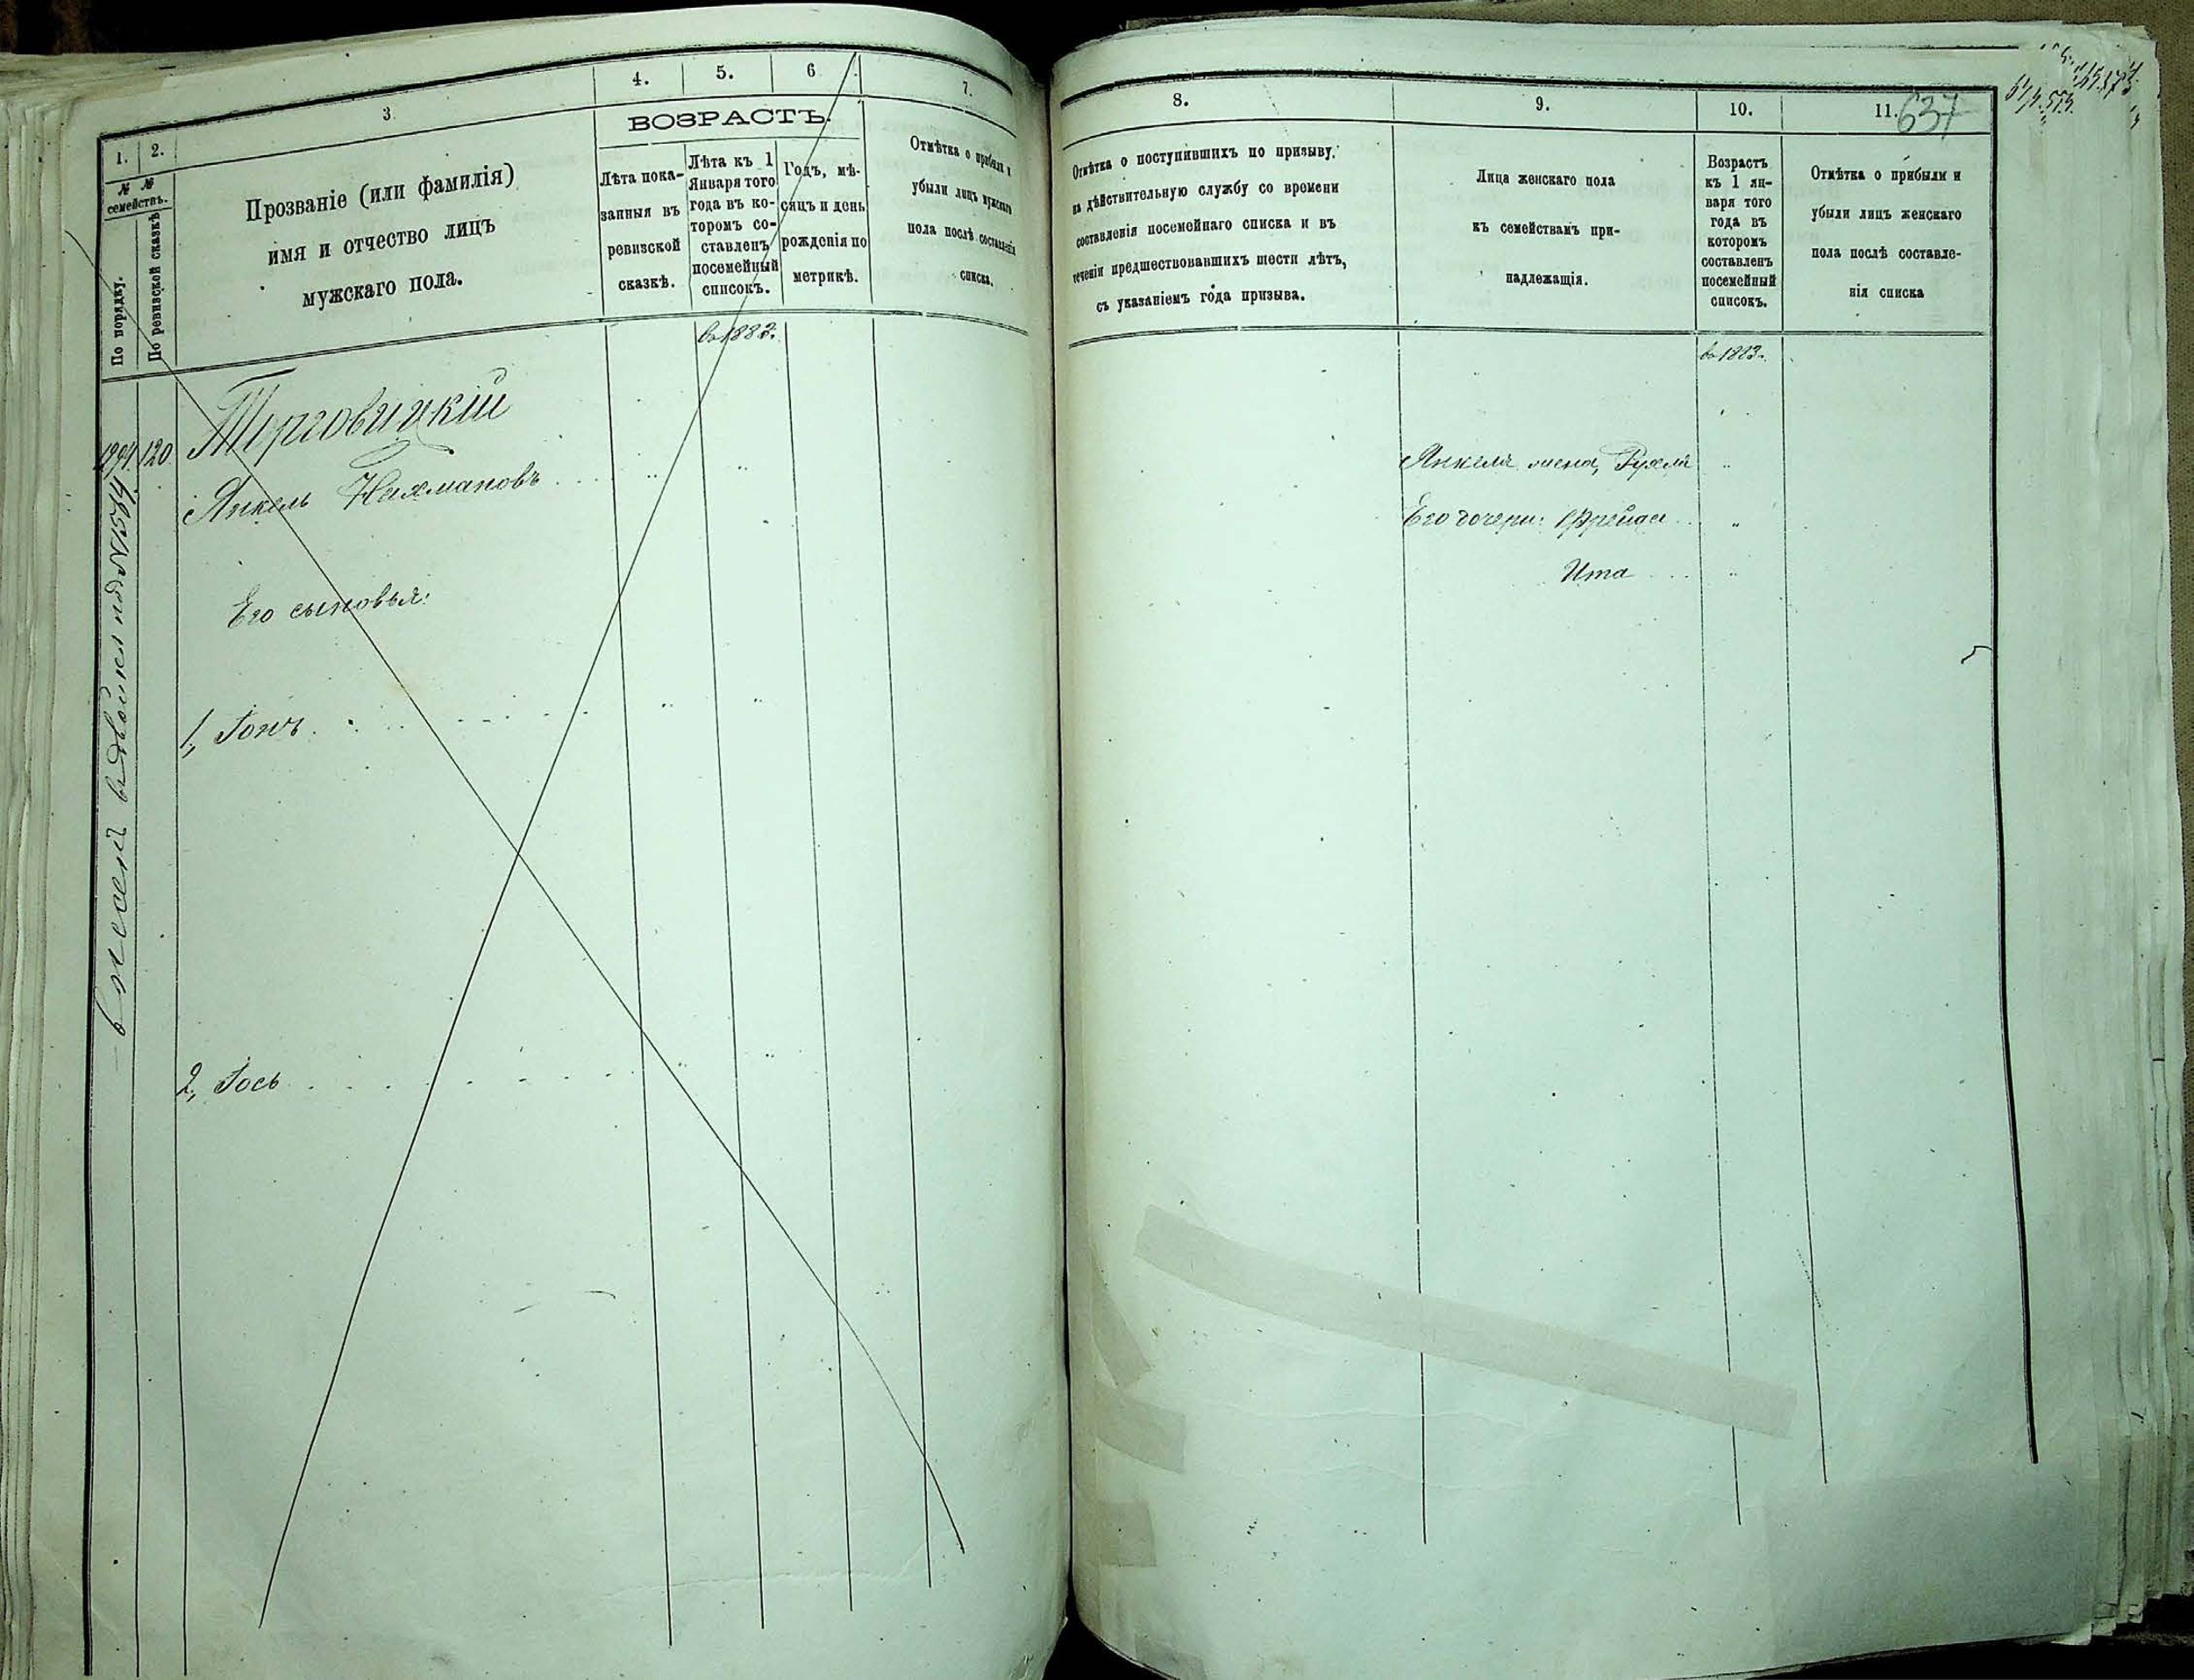 1.
2.
3.
4.
5.
6
7.
№ №
семействъ.
По порядку.
По ревизской сказкѣ
Прозваніе (или фамилія)
имя и отчество лицъ
мужскаго пола.
ВОЗРАСТЪ.
Лѣта пока-
занныя въ
ревизской
сказкѣ.
Лѣта къ 1
Января того
года въ ко-
торомъ со-
ставленъ
посемейный
списокъ.
Годъ, мѣ-
сяцъ и день
рожденія по
метрикѣ.
Отмѣтка о прибыли и
убыли лицъ мужскаго
пола послѣ составленія
списка.
въ 1882.
120.
Торговицкій
Янкель Нахмановъ
Его сыновья:
1, Іонъ
2, Іось
8.
9.
10.
11.
637
Отмѣтка о поступившихъ по призыву,
на дѣйствительную службу со времени
составленія посемейнаго списка и въ
теченіи предшествовавшихъ шести лѣтъ,
съ указаніемъ года призыва.
Лица женскаго пола
къ семействамъ при-
надлежащія.
Возрастъ
къ 1 ян-
варя того
года въ
которомъ
составленъ
посемейный
списокъ.
Отмѣтка о прибыли и
убыли лицъ женскаго
пола послѣ составле-
нія списка
въ 1883.
Янкеля жена, Рухля
Его дочери: Фрейда
Ита